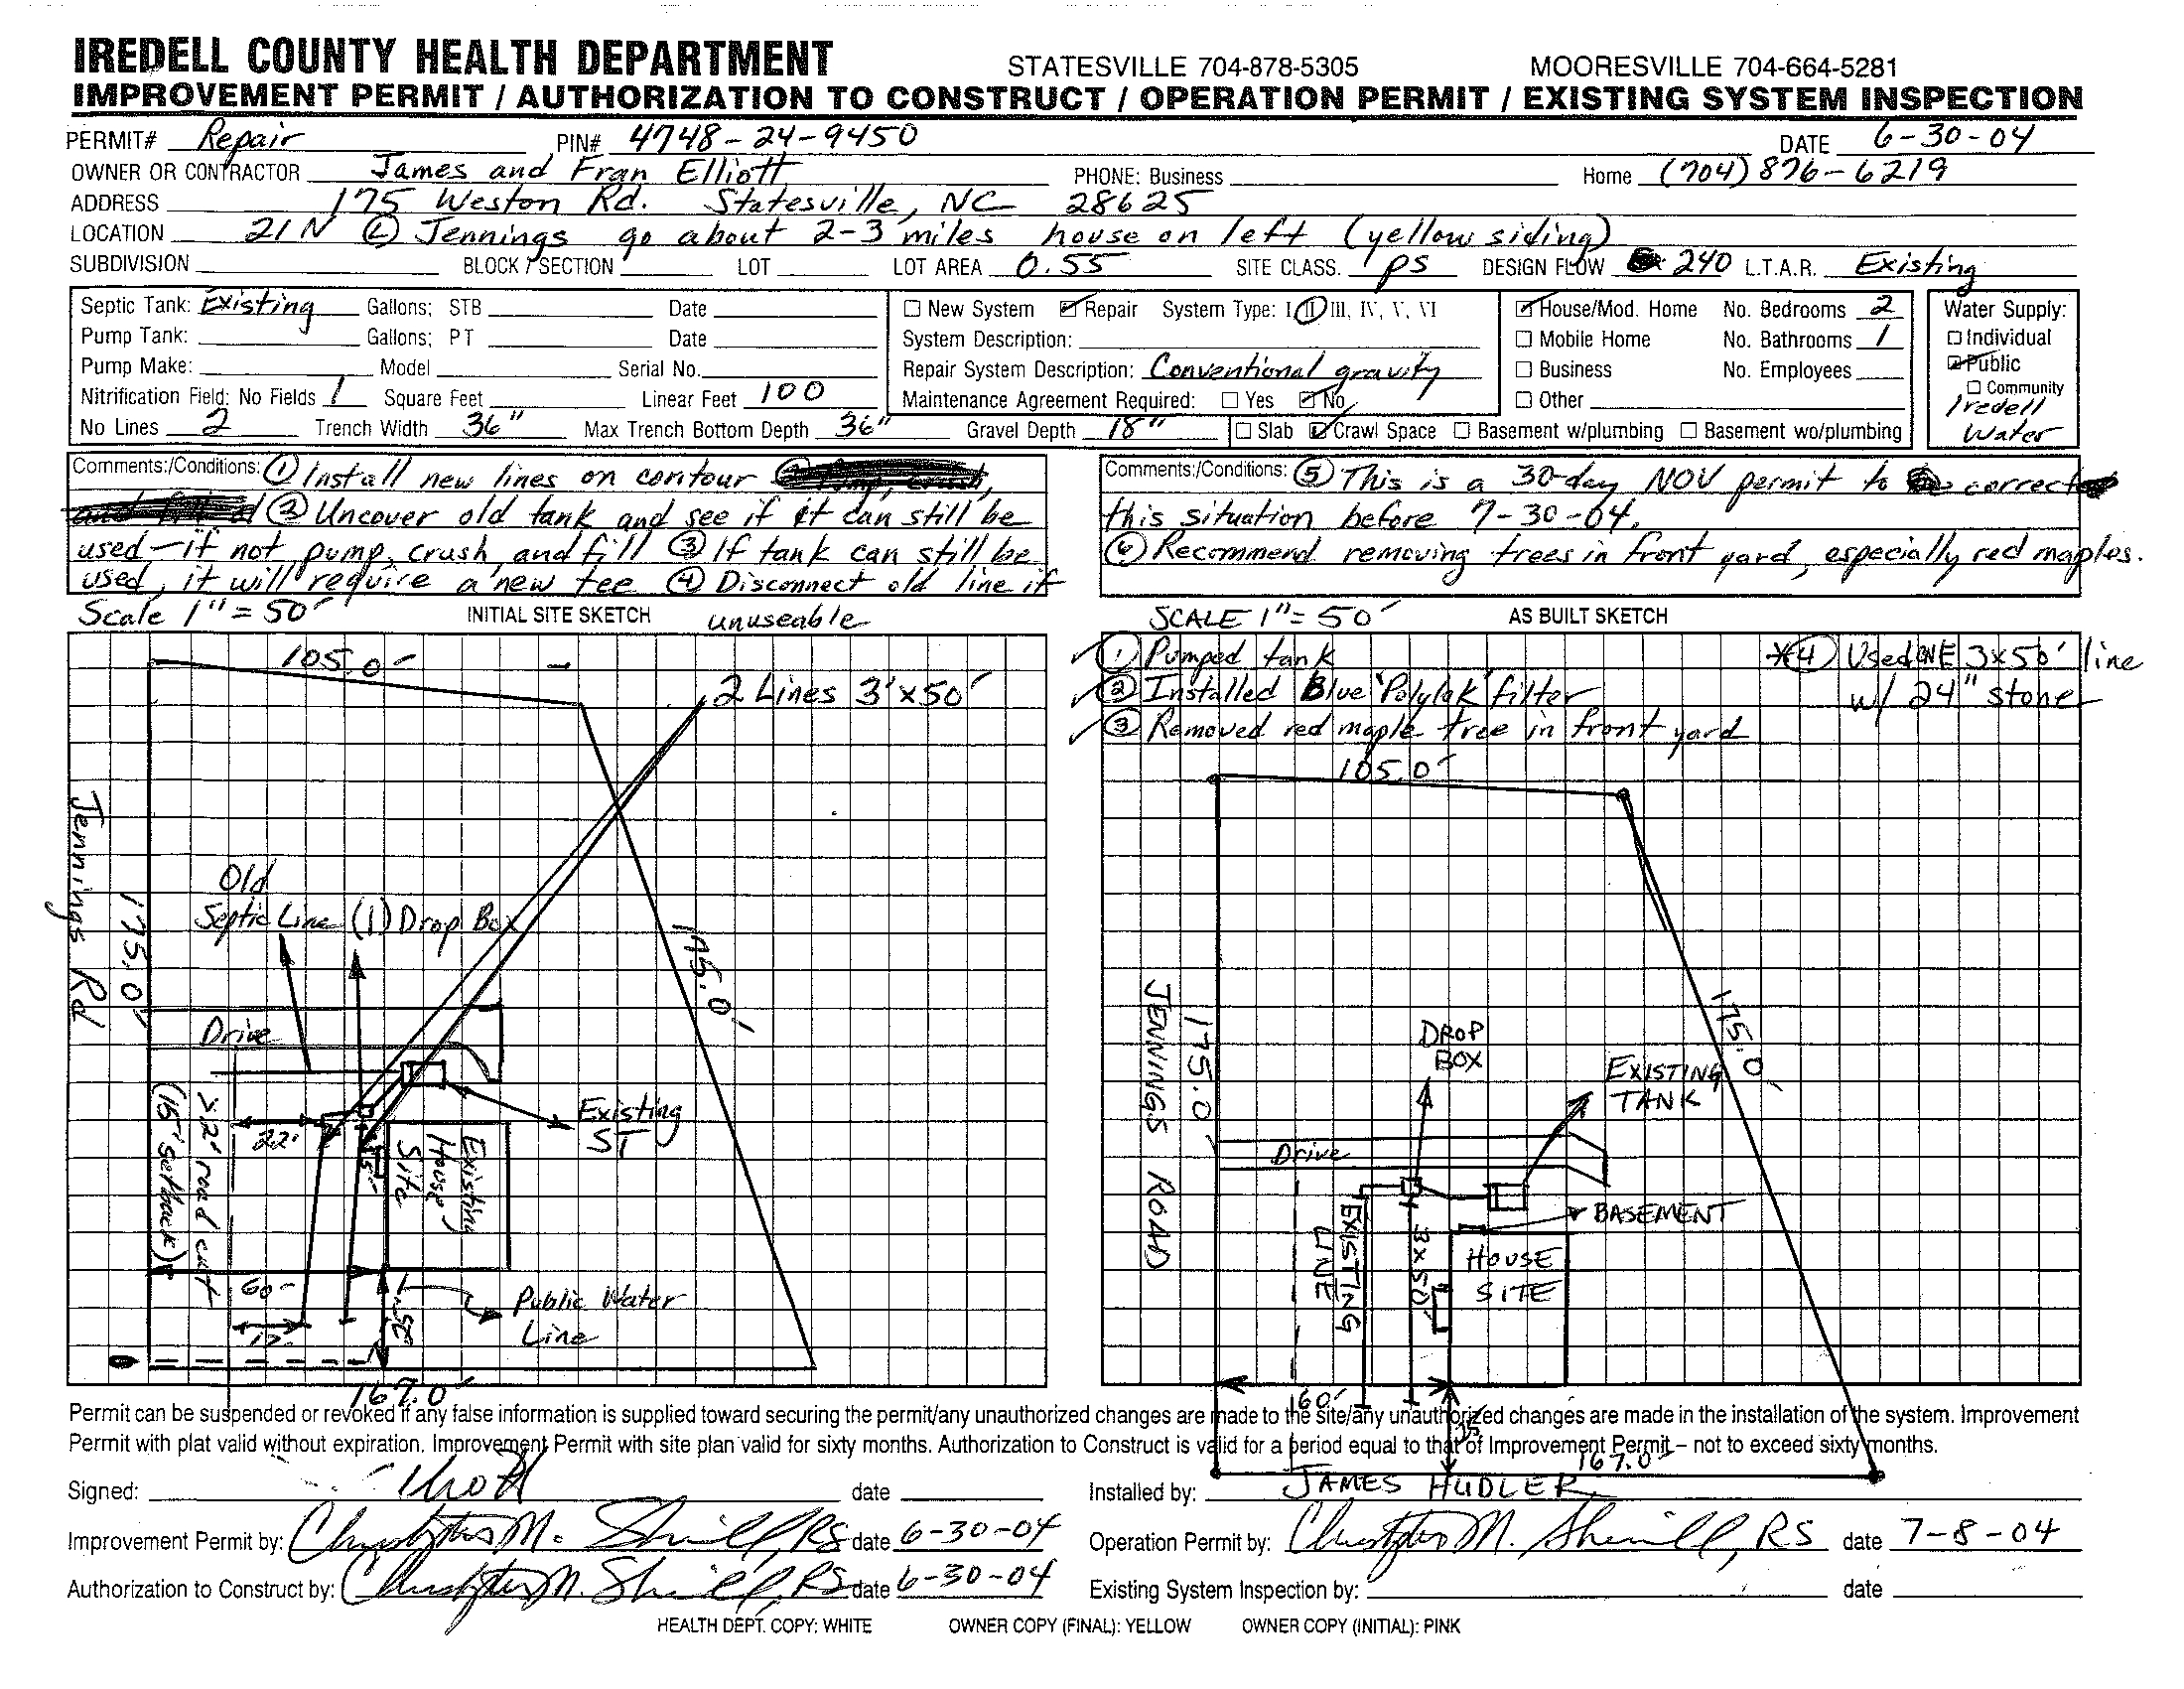 IREDELL COUNTY HEALTH DEPARTMENT STATESVILLE 704-878-5305 MOORESVILLE 704-664-5281
IMPROVEMENT PERMIT / AUTHORIZATION TO CONSTRUCT / OPERATION PERMIT / EXISTING SYSTEM INSPECTION
PERMIT# Repair PIN# 4748-24-9450 DATE 6-30-04
OWNER OR CONTRACTOR James and Fran Elliott PHONE: Business Home (704) 876-6219
ADDRESS 175 Weston Rd. Statesville, NC 28625
LOCATION 21N (L) Jennings go about 2-3 miles house on left (yellow siding)
SUBDIVISION BLOCK / SECTION LOT LOT AREA 0.55 SITE CLASS. PS DESIGN FLOW 240 L.T.A.R. Existing
Septic Tank: Existing Gallons; STB Date
Pump Tank: Gallons; PT Date
Pump Make: Model Serial No.
Nitrification Field: No Fields 1 Square Feet Linear Feet 100
No Lines 2 Trench Width 36" Max Trench Bottom Depth 36" Gravel Depth 18"
New System Repair System Type: I II III, IV, V, VI
System Description:
Repair System Description: Conventional gravity
Maintenance Agreement Required: Yes No
House/Mod. Home No. Bedrooms 2
Mobile Home No. Bathrooms 1
Business No. Employees
Other
Slab Crawl Space Basement w/plumbing Basement wo/plumbing
Water Supply:
Individual
Public
Community
Iredell
Water
Comments:/Conditions: ① Install new lines on contour
② Uncover old tank and see if it can still be
used - if not pump, crush, and fill ③ If tank can still be
used, it will require a new tee ④ Disconnect old line if
unuseable
Comments:/Conditions: ⑤ This is a 30-day NOV permit to correct
this situation before 7-30-04.
⑥ Recommend removing trees in front yard, especially red maples.
Scale 1" = 50' INITIAL SITE SKETCH
105.0'
2 Lines 3'x50'
Jennings Rd
175.0'
Old
Septic Line
(1) Drop Box
175.0'
Drive
Existing
ST
22'
5'
Existing
House
Site
>2' road cut
(15' setback)
60'
12'
25'
Public Water
Line
167.0'
SCALE 1" = 50' AS BUILT SKETCH
① Pumped tank
② Installed Blue 'Polylok' filter
③ Removed red maple tree in front yard
*④ Used ONE 3x50' line
w/ 24" stone
105.0'
JENNINGS ROAD
175.0'
175.0'
DROP
BOX
EXISTING
TANK
Drive
BASEMENT
EXISTING
LINE
3x50'
HOUSE
SITE
60'
35
167.0'
Permit can be suspended or revoked if any false information is supplied toward securing the permit/any unauthorized changes are made to the site/any unauthorized changes are made in the installation of the system. Improvement
Permit with plat valid without expiration. Improvement Permit with site plan valid for sixty months. Authorization to Construct is valid for a period equal to that of Improvement Permit – not to exceed sixty months.
Signed: date
Improvement Permit by: Christopher M. Sherrill, RS date 6-30-04
Authorization to Construct by: Christopher M. Sherrill, RS date 6-30-04
Installed by: JAMES HUDLER
Operation Permit by: Christopher M. Sherrill, RS date 7-8-04
Existing System Inspection by: date
HEALTH DEPT. COPY: WHITE OWNER COPY (FINAL): YELLOW OWNER COPY (INITIAL): PINK